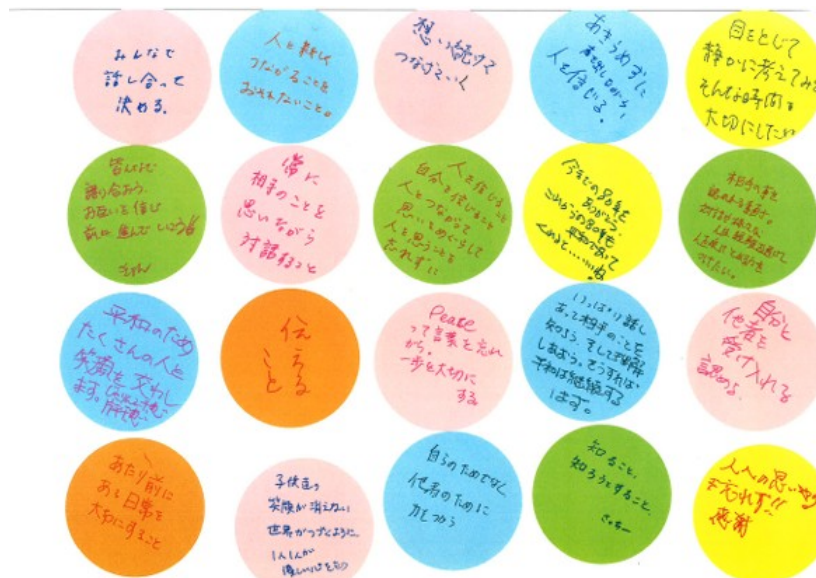 みんなで
話し合って
決める。
人と新しく
つながることを
おそれないこと。
想い続けて
つなげていく
あきらめずに
声を出しながら
人を信じる。
目をとじて
静かに考えてみる
そんな時間を
大切にしたい
皆んなで
語り合おう。
お互いを信じ
前に進んでいこう!!
常に
相手のことを
思いながら
対話すること
人を信じること
自分を信じること
人とつながって
思いをめぐらして
人を思うことを
忘れずに
今までの80年を
ありがとう。
これからの80年も
平和であって
くれると・・・いいね。
平和のため
たくさんの人と
笑顔を交わし
ます。
伝える
こと
Peace
って言葉を忘れ
から。
一歩を大切に
する
いっぱい話し
あって相手のことを
知ろう、そして理解
しあおう。そうすれば
平和は継続する
はず。
自分と
他者を
受け入れる
認める
あたり前に
ある日常を
大切にすること
子供達の
笑顔が消えない
世界がつづくように、
1人1人が
優しい心をもつ
自らのためでなく
他者のために
力をつかう
知ること、
知ろうとすること、
さっちー
人人の思いやり
を忘れず!!
感謝